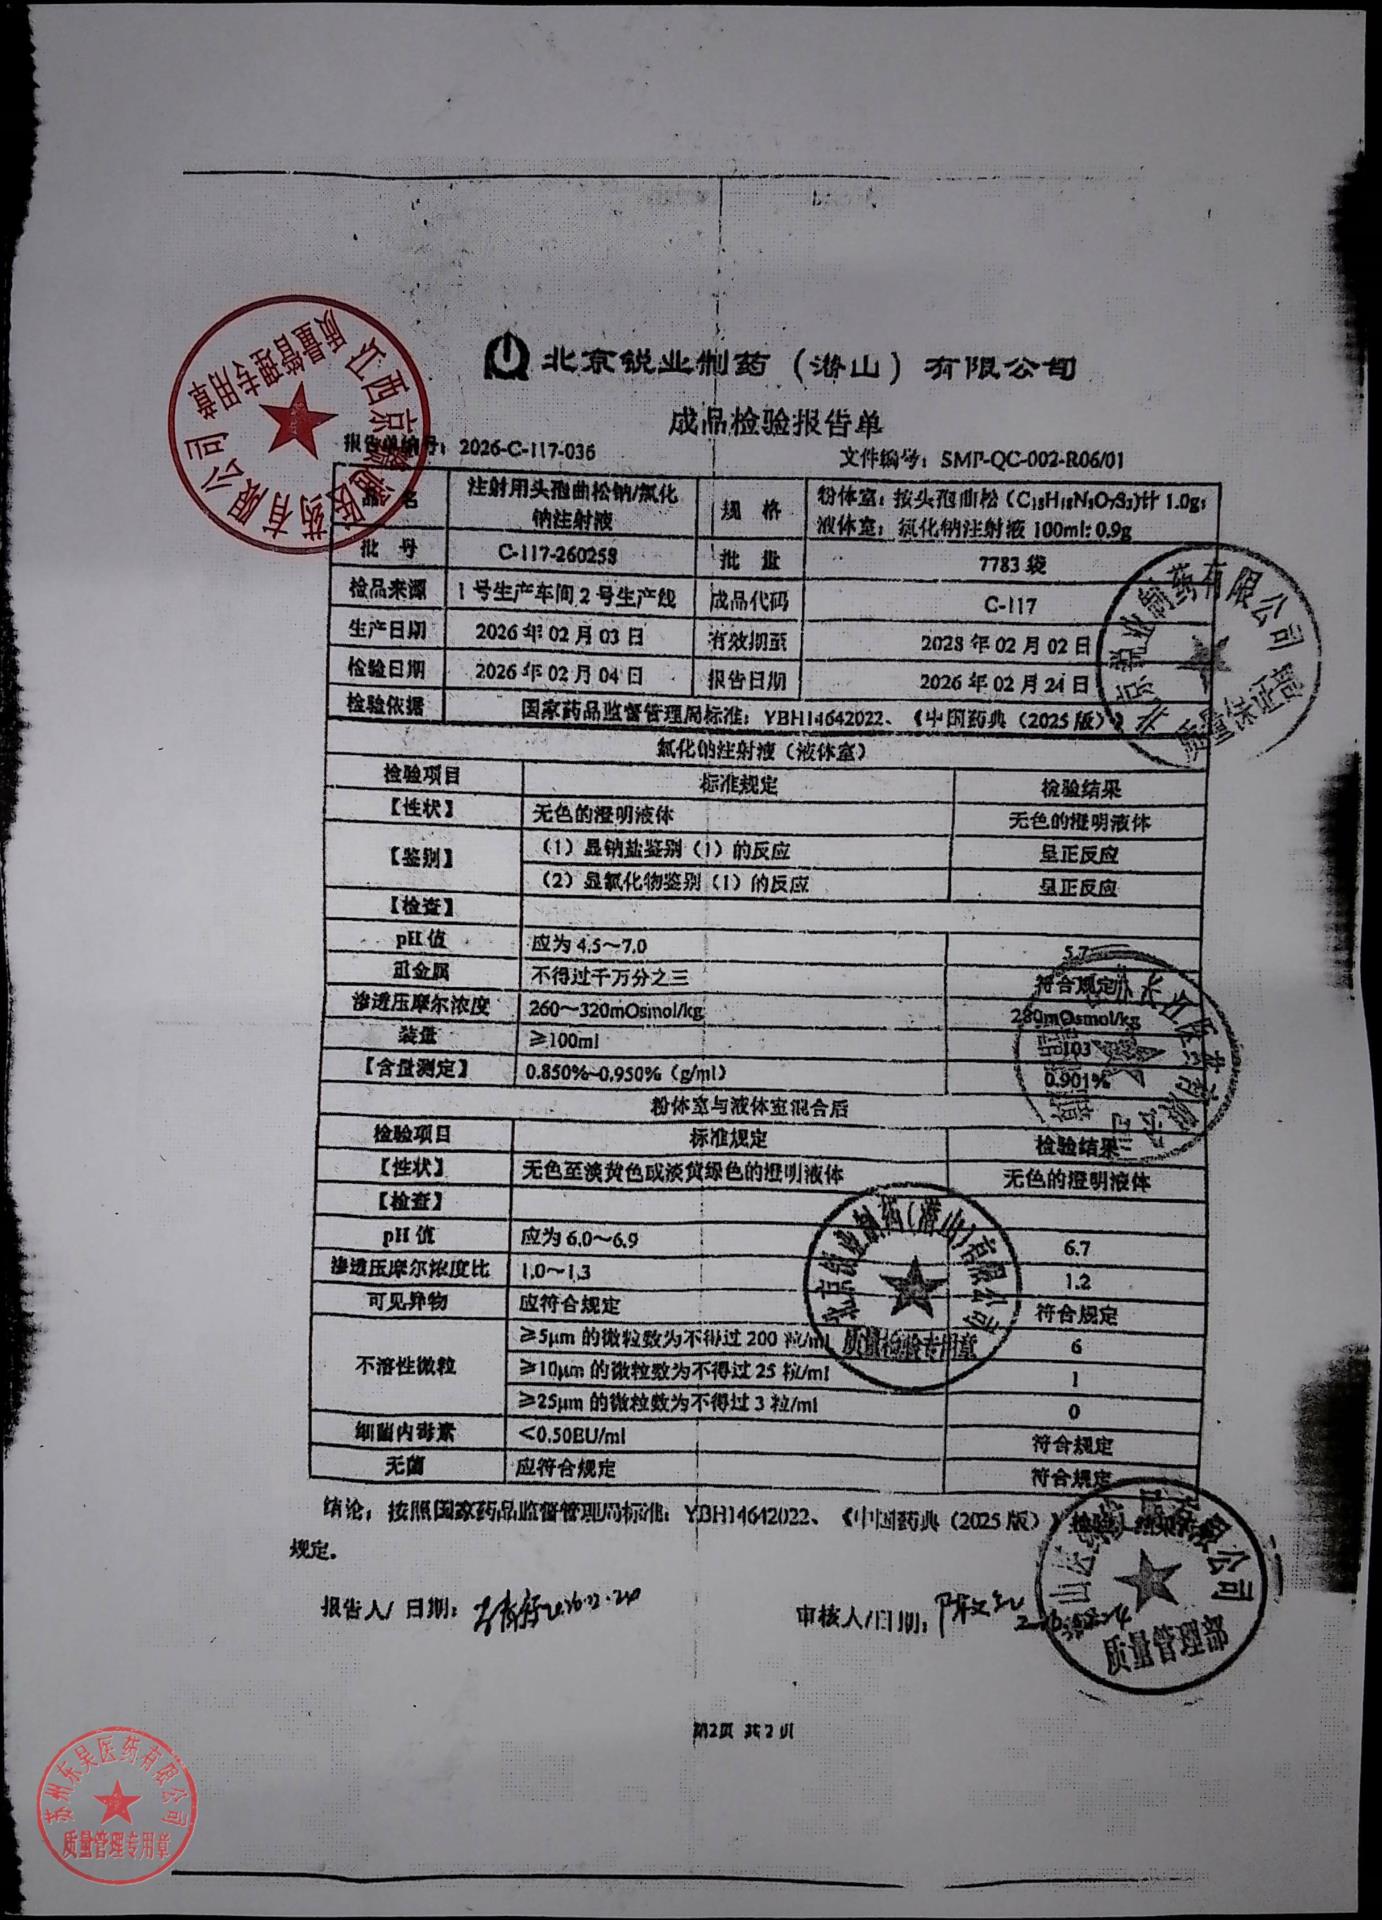 北京锐业制药（潜山）有限公司
成品检验报告单
报告单编号：2026-C-117-036 文件编号：SMP-QC-002-R06/01
品 名 注射用头孢曲松钠/氯化钠注射液 规 格 粉体室：按头孢曲松（C₁₈H₁₈N₈O₇S₃)计 1.0g；
液体室：氯化钠注射液 100ml: 0.9g
批 号 C-117-260258 批 量 7783 袋
检品来源 1 号生产车间 2 号生产线 成品代码 C-117
生产日期 2026 年 02 月 03 日 有效期至 2028 年 02 月 02 日
检验日期 2026 年 02 月 04 日 报告日期 2026 年 02 月 24 日
检验依据 国家药品监督管理局标准：YBH14642022、《中国药典（2025 版）》
氯化钠注射液（液体室）
检验项目 标准规定 检验结果
【性状】 无色的澄明液体 无色的澄明液体
【鉴别】 （1）显钠盐鉴别（1）的反应 呈正反应
（2）显氯化物鉴别（1）的反应 呈正反应
【检查】
pH 值 应为 4.5～7.0 5.7
重金属 不得过千万分之三 符合规定
渗透压摩尔浓度 260～320mOsmol/kg 280mOsmol/kg
装量 ≥100ml 103
【含量测定】 0.850%~0.950%（g/ml） 0.901%
粉体室与液体室混合后
检验项目 标准规定 检验结果
【性状】 无色至淡黄色或淡黄绿色的澄明液体 无色的澄明液体
【检查】
pH 值 应为 6.0～6.9 6.7
渗透压摩尔浓度比 1.0～1.3 1.2
可见异物 应符合规定 符合规定
不溶性微粒 ≥5μm 的微粒数为不得过 200 粒/ml 6
≥10μm 的微粒数为不得过 25 粒/ml 1
≥25μm 的微粒数为不得过 3 粒/ml 0
细菌内毒素 <0.50EU/ml 符合规定
无菌 应符合规定 符合规定
结论：按照国家药品监督管理局标准：YBH14642022、《中国药典（2025 版）》检验，结果
规定。
报告人/ 日期： 审核人/日期：
第2页 共 2 页
江西京 医药有限公司
质量管理专用章
北京锐业制药有限公司
质量保证部
北京锐业制药(潜山)有限公司
质量检验专用章
有限公司
质量管理部
苏州东吴医药有限公司
质量管理专用章